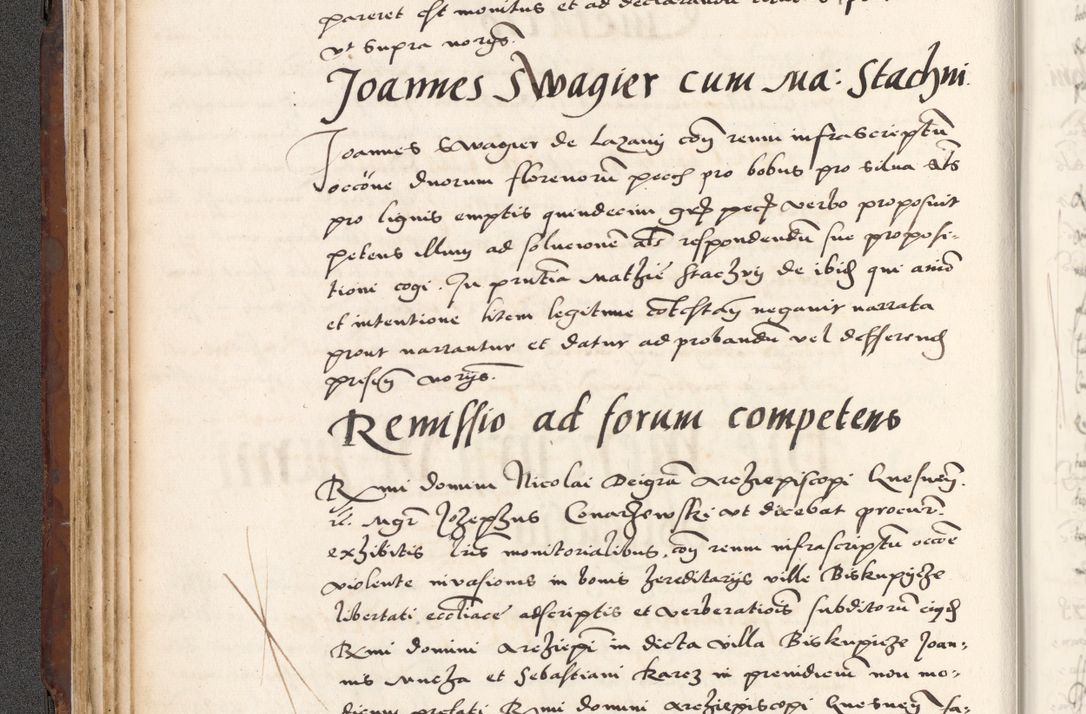 pareret est monitus et ad declarandum
ut supra noryß.
Joannes Swagier cum Ma: Stachni.
Joannes Swagier de Lazany con reum infrascriptū
occōne duorum florenorū pecch pro bobus pro silua als
pro lignis emptis quindecim groß pecß verbo proposuit
petens illum ad solucionē als respondendū sue proposi-
tioni cogi. In pntia Mathie Stachny de ibid qui animo
et intentione litem legitime contestan negauit narrata
prout narrantur et datur ad probandū vel defferend
presen noryß.
Remissio ad forum competens
Rmi domini Nicolai Dei gra Archiepiscopi Gnesnen.
rl. Mgr Jozephus Conarzewsski ut dicebat procur.
exhibitis lris monitorialibus, con reum infrascriptū occōe
violente inuasionis in bonis hereditarys ville Biskupycze
libertati eccliace adscriptis et verberationis subditorū eiusd
Rmi domini Archiepi in dicta villa Biskupicze Joan-
nis Mucha et Sebastiani Karcz in preiudicium non mo-
dicum prefati Rmi domini Archiepiscopi Gnesnen fa-